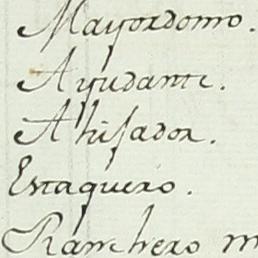 Mayordomo.
Ayudante.
Ahijador.
Estaquero.
Ranchero m